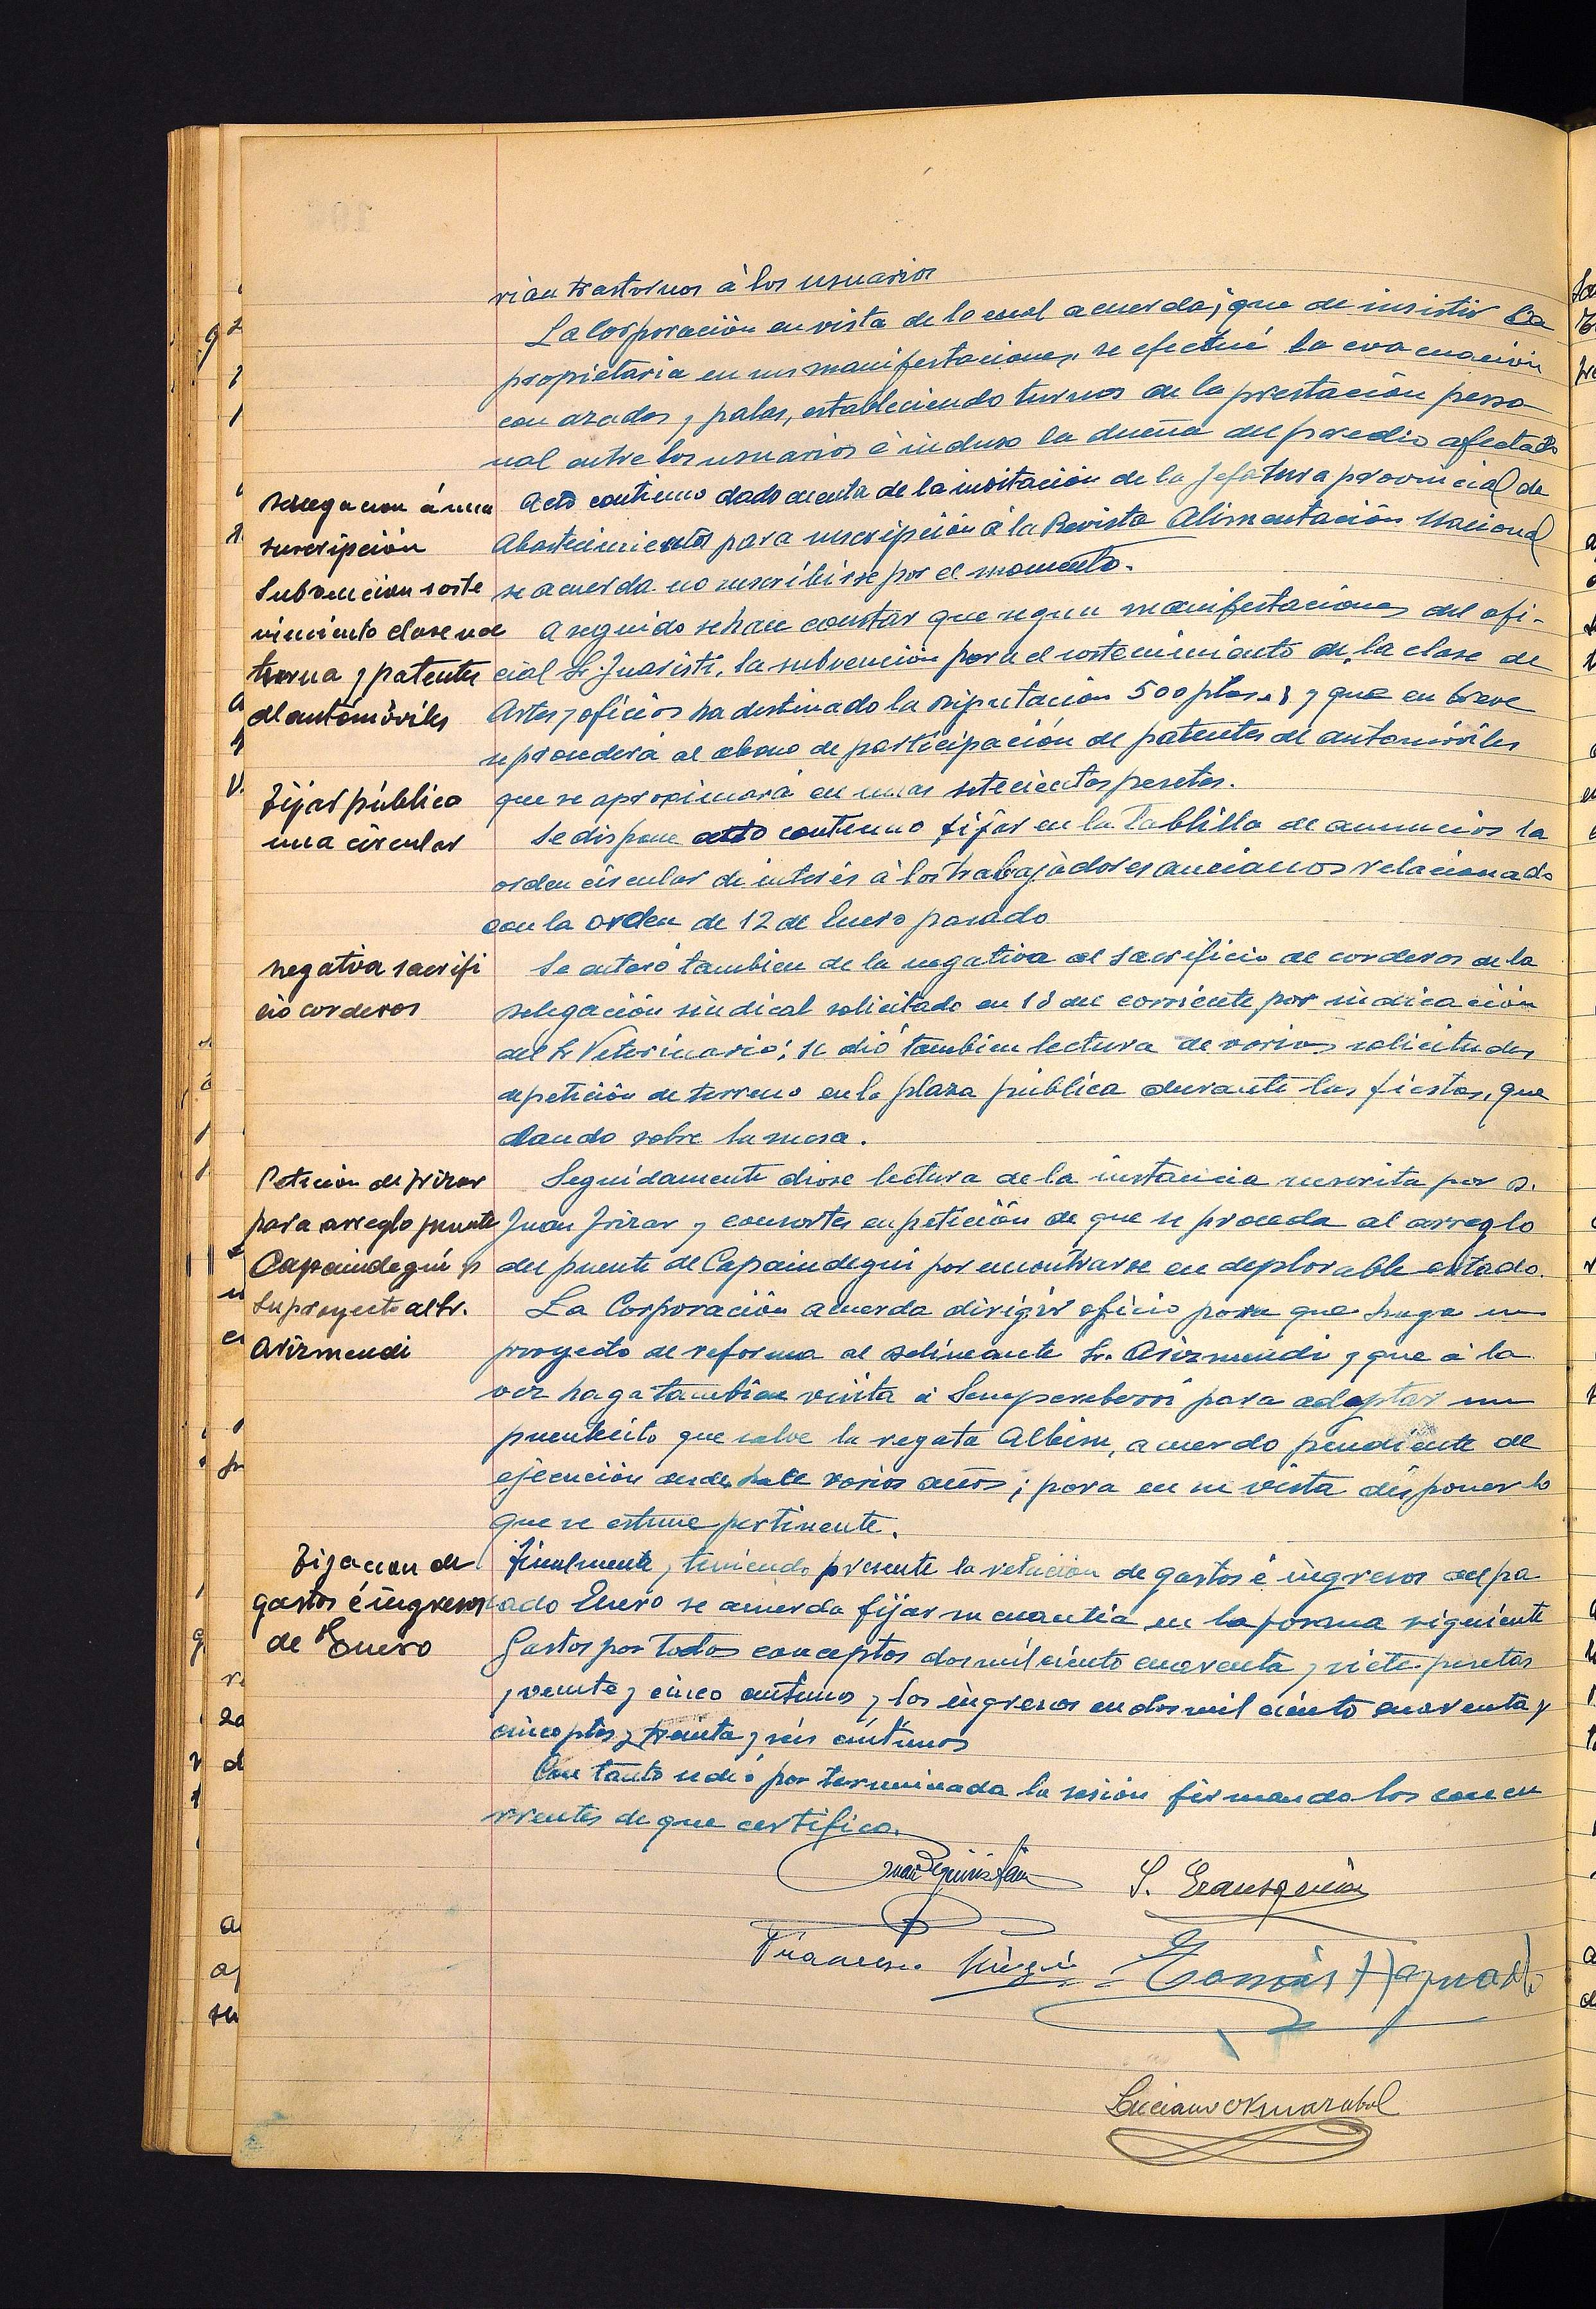 rian trastornos à los usuarios
La Corporación en vista de lo cual acuerda; que de insistir la
propietaria en sus manifestaciones, se efectué la evacuación
con azadas y palas, estableciendo turnos de la prestación perso
nal entre los usuarios è incluso la dueña del predio afectado
Denegacion á una
suscripción
Acto continuo dado cuenta de la invitación de la Jefatura provincial de
Abastecimientos para suscripción à la Revista Alimentación Nacional
se acuerda no suscribirse por el momento.
Subvencion soste
nimiento clase noc
turna y patentes
de automóviles
A seguido se hace constar que segun manifestaciones del ofi-
cial Sr. Juaristi, la subvención para el sostenimiento de la clase de
Artes y oficios ha destinado la Diputación 500 ptas. y que en breve
se procederá al abono de participación de patentes de automóviles
que se aproximará en unas setecientas pesetas.
Fijar público
una circular
Se dispone acto continuo fijar en la Tablilla de anuncios la
orden circular de interés à los trabajadores ancianos relacionado
con la orden de 12 de Enero pasado
negativa sacrifi
cio corderos
Se enteró tambien de la negativa al sacrificio de corderos de la
Delegación sindical solicitado en 18 del corriente por indicación
del Sr Veterinario; se dió tambien lectura de varias solicitudes
de petición de terreno en la plaza pública durante las fiestas, que
dando sobre la mesa.
Petición de Irizar
para arreglo puente
Capaindegui y
su proyecto al Sr.
Arizmendi
Seguidamente diose lectura de la instancia suscrita por D.
Juan Irizar y consortes en petición de que se proceda al arreglo
del puente de Capaindegui por encontrarse en deplorable estado.
La Corporación acuerda dirigir oficio para que haga un
proyecto de reforma al delineante Sr. Arizmendi y que à la
vez haga tambien visita à Sempereberri para adaptar un
puentecito que salve la regata Albisu, acuerdo pendiente de
ejecución desde hace varios años; para en su vista disponer lo
que se estime pertinente.
Fijacion de
gastos é ingresos
de Enero
Finalmente, teniendo presente la relación de gastos é ingresos del pa
sado Enero se acuerda fijar su cuantía en la forma siguiente
Gastos por todos conceptos dos mil ciento cuarenta y siete pesetas
y veinte y cinco centimos y los ingresos en dos mil ciento cuarenta y
cinco ptas y treinta y seis céntimos
Con tanto se dió por terminada la sesión firmando los concu
rrentes de que certifico.
S. Eransquin
Francisco
Tomás
Luciano